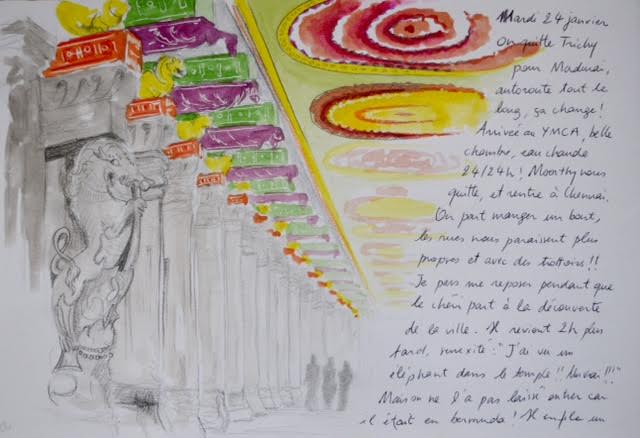 Mardi 24 janvier
On quitte Trichy
pour Madurai,
autoroute tout le
long, ça change!
Arrivée au YMCA, belle
chambre, eau chaude
24/24h! Moorthy nous
quitte, et rentre à Chennai.
On part manger un bout,
les rues nous paraissent plus
propres et avec des trottoirs!!
Je pars me reposer pendant que
le chéri part à la découverte
de la ville. Il revient 2h plus
tard, surexcité: "J'ai vu un
éléphant dans le temple!! Un vrai!!!"
Mais on ne l'a pas laissé entrer car
il était en bermuda! Il enfile un